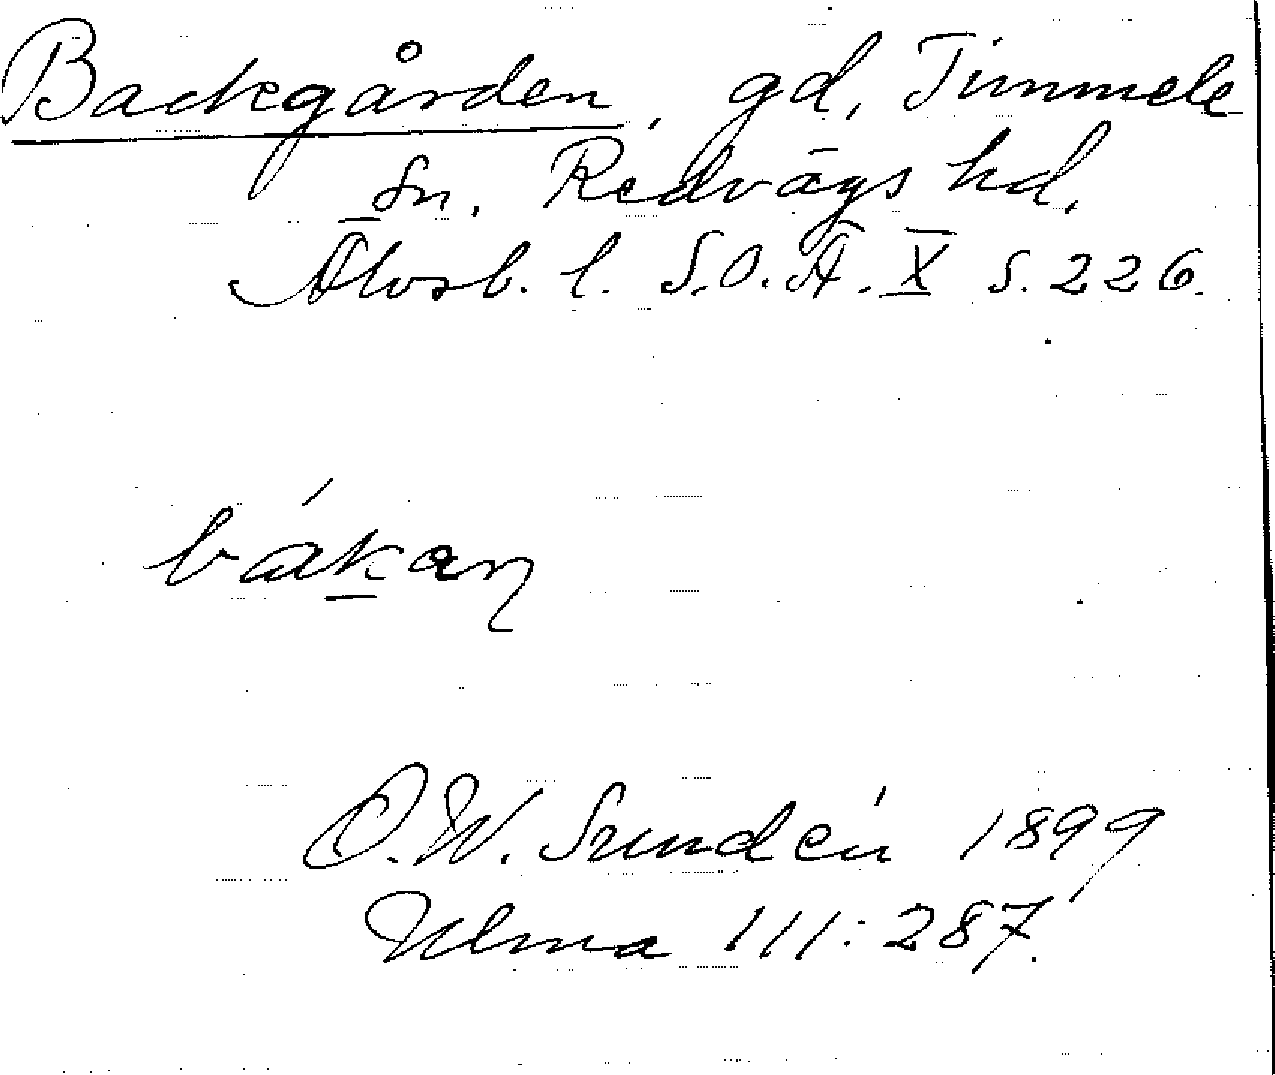 Backgården, gd, Timmele
sn. Redvägs hd.
Älvsb. l. S.O.Ä. X s. 226.
bákaŋ
D.W. Sundén 1899
Ulma 111:287.